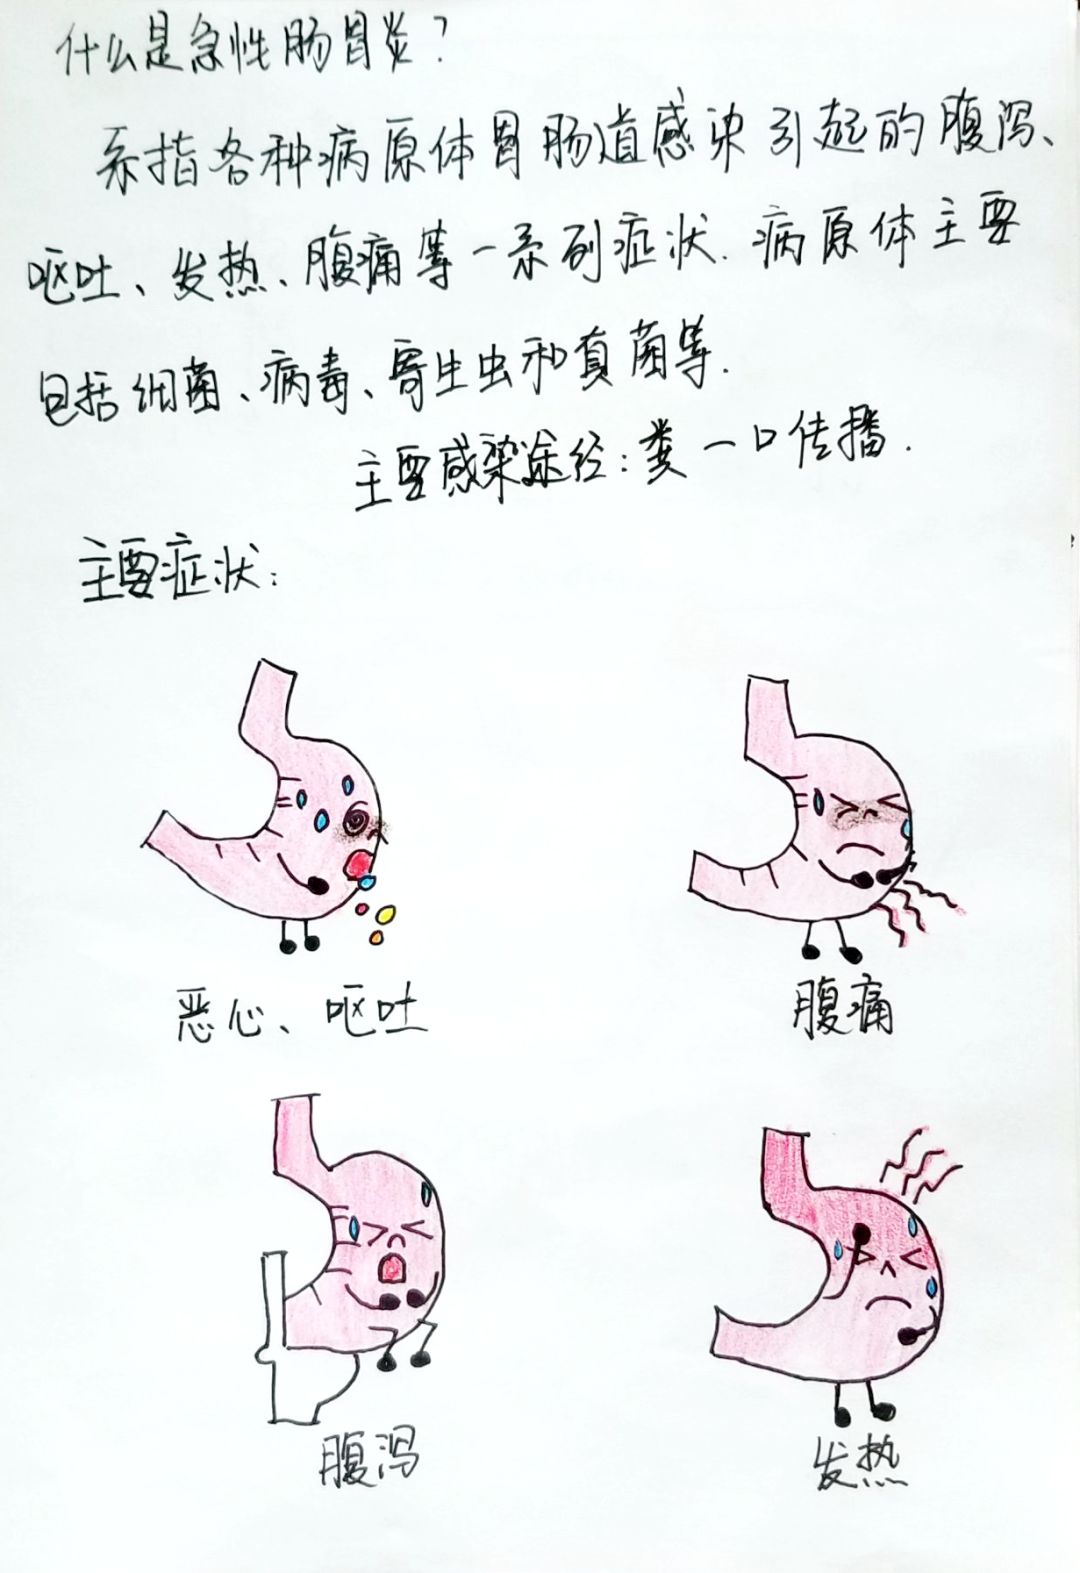 什么是急性肠胃炎?
系指各种病原体胃肠道感染引起的腹泻、
呕吐、发热、腹痛等一系列症状.病原体主要
包括细菌、病毒、寄生虫和真菌等.
主要感染途径:粪一口传播.
主要症状:
恶心、呕吐
腹痛
腹泻
发热